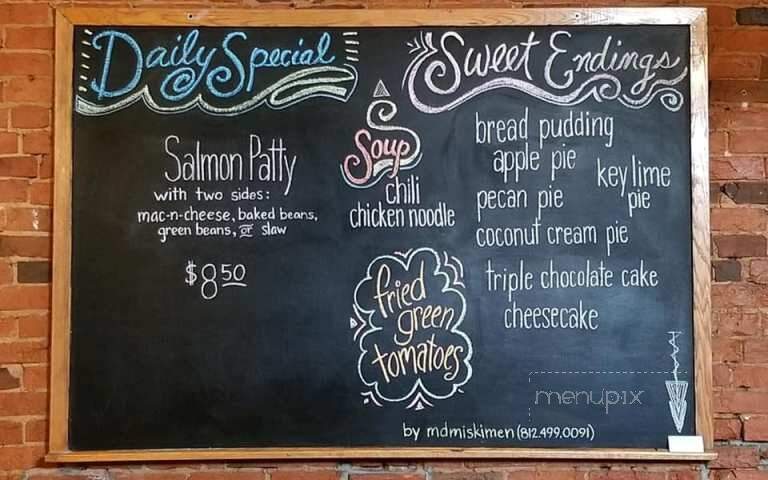 Daily Special
Salmon Patty
with two sides:
mac-n-cheese, baked beans,
green beans, or slaw
$8.50
Soup
chili
chicken noodle
fried
green
tomatoes
Sweet Endings
bread pudding
apple pie
key lime
pie
pecan pie
coconut cream pie
triple chocolate cake
cheesecake
by mdmiskimen (812.499.0091)
menupix